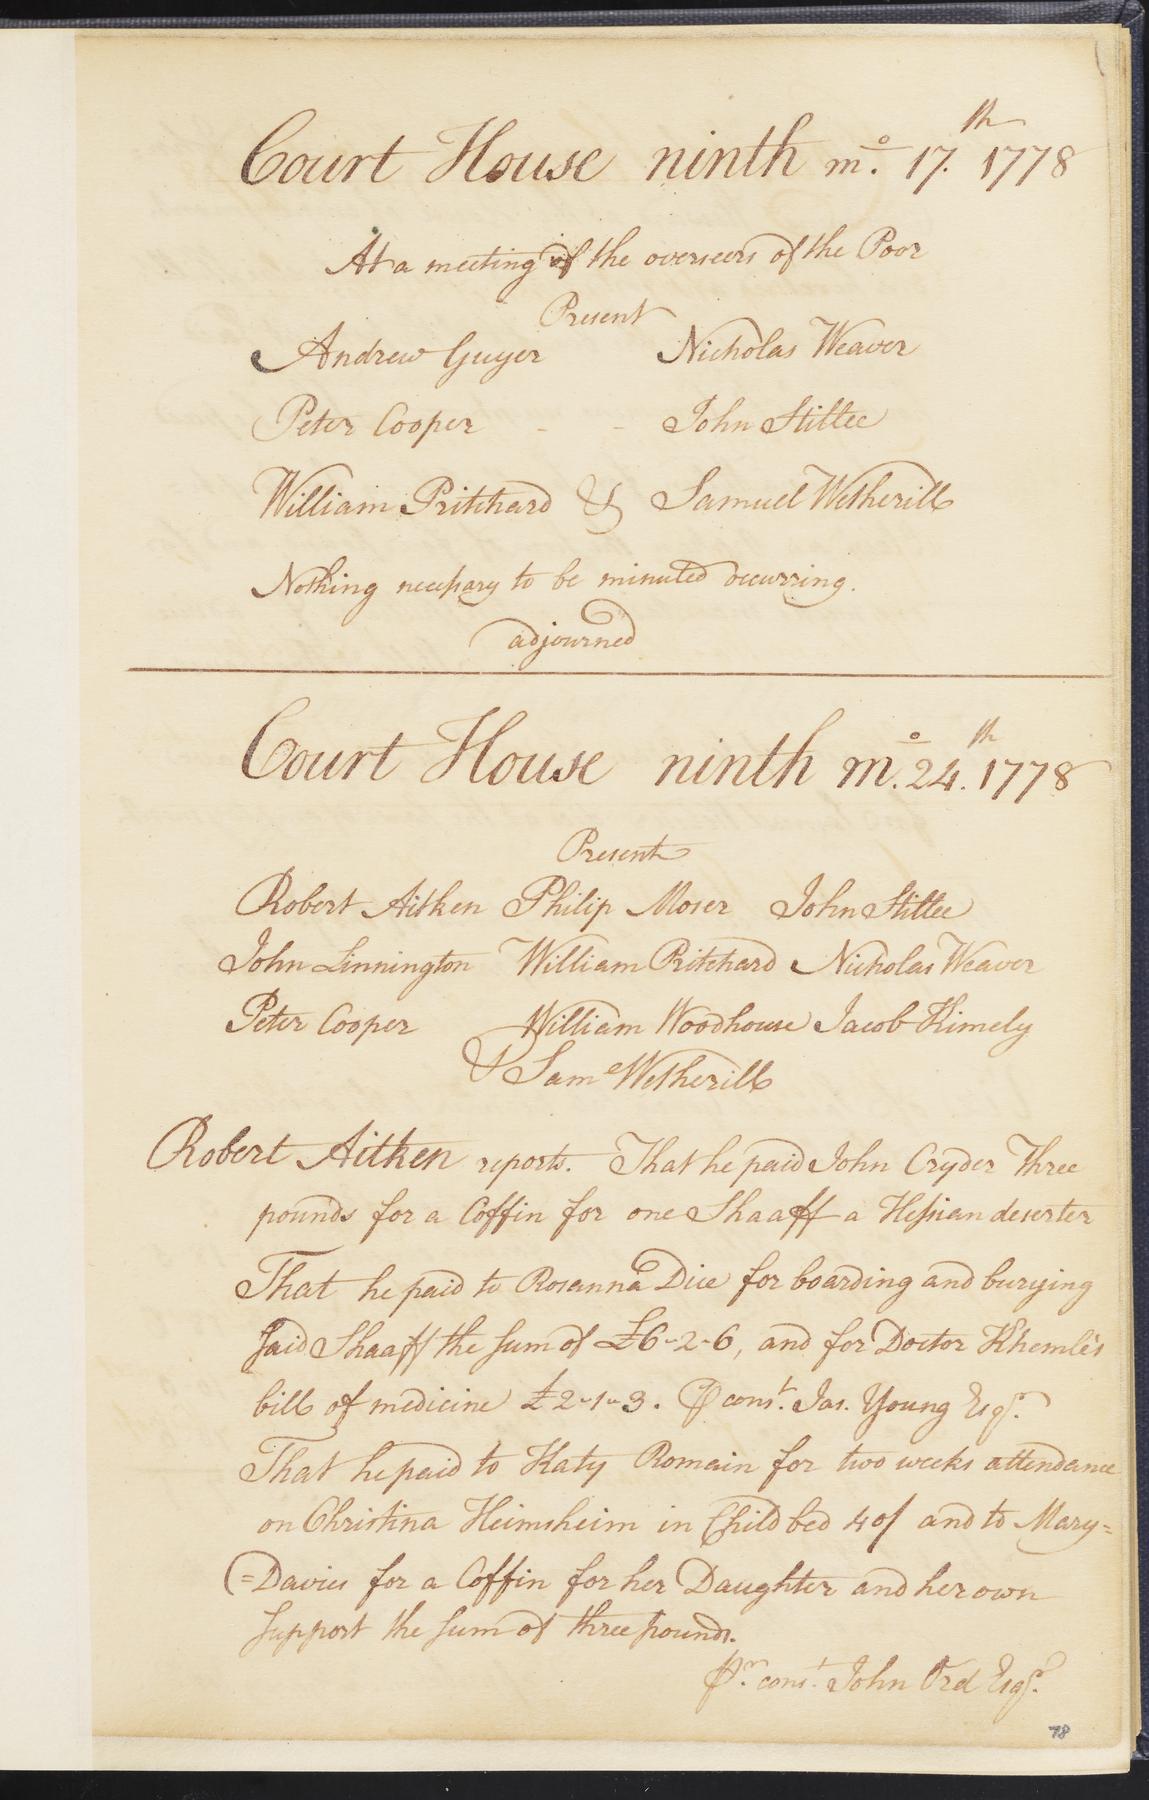 Court House ninth mo. 17.th 1778
At a meeting of the overseers of the Poor
Present
Andrew Guyer Nicholas Weaver
Peter Cooper - - John Stillee
William Pritchard & Samuel Wetherill
Nothing necessary to be minuted occurring.
adjourned
Court House ninth mo. 24.th 1778
Present
Robert Aitken Philip Moser John Stillee
John Linnington William Pritchard Nicholas Weaver
Peter Cooper William Woodhouse Jacob Kimely
& Saml Wetherill
Robert Aitken reports. That he paid John Cryder Three
pounds for a Coffin for one Shaaff a Hessian deserter
That he paid to Rosanna Dice for boarding and burying
said Shaaff the sum of £6-2-6, and for Doctor Khemle's
bill of medicine £2-1-3. P const. Jas. Young Esqr.
That he paid to Katy Romain for two weeks attendance
on Christina Heimsheim in Child bed 40/ and to Mary=
=Davies for a Coffin for her Daughter and her own
support the sum of three pounds.
Pr. const. John Ord Esqr.
78